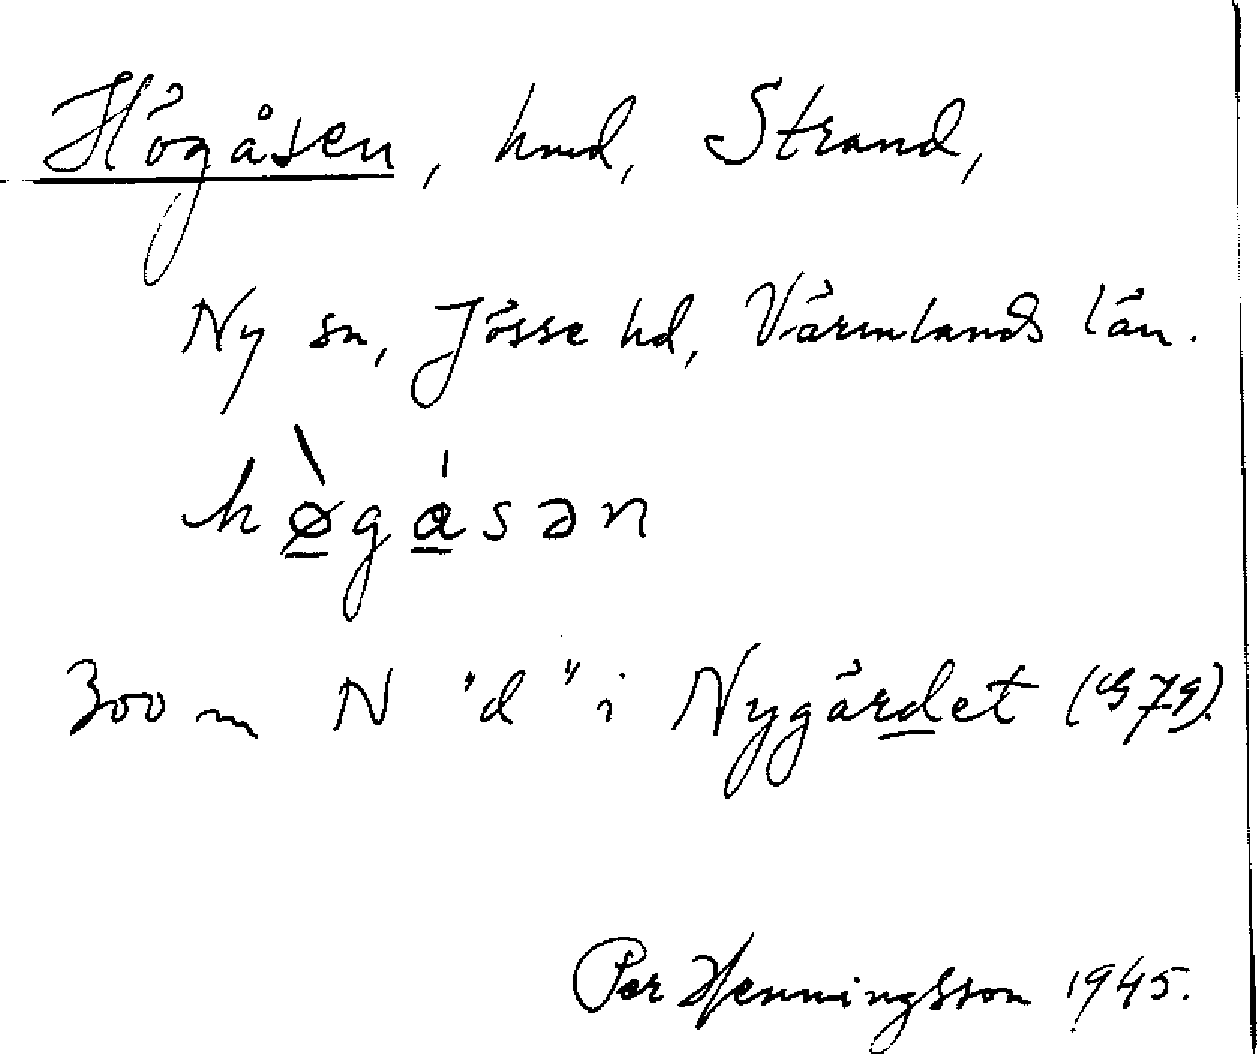 Högåsen, hmd, Strand,
Ny sn, Jösse hd, Värmlands län.
hø̀gásən
300 m N "d" i Nygärdet (G79).
Per Henningsson 1945.